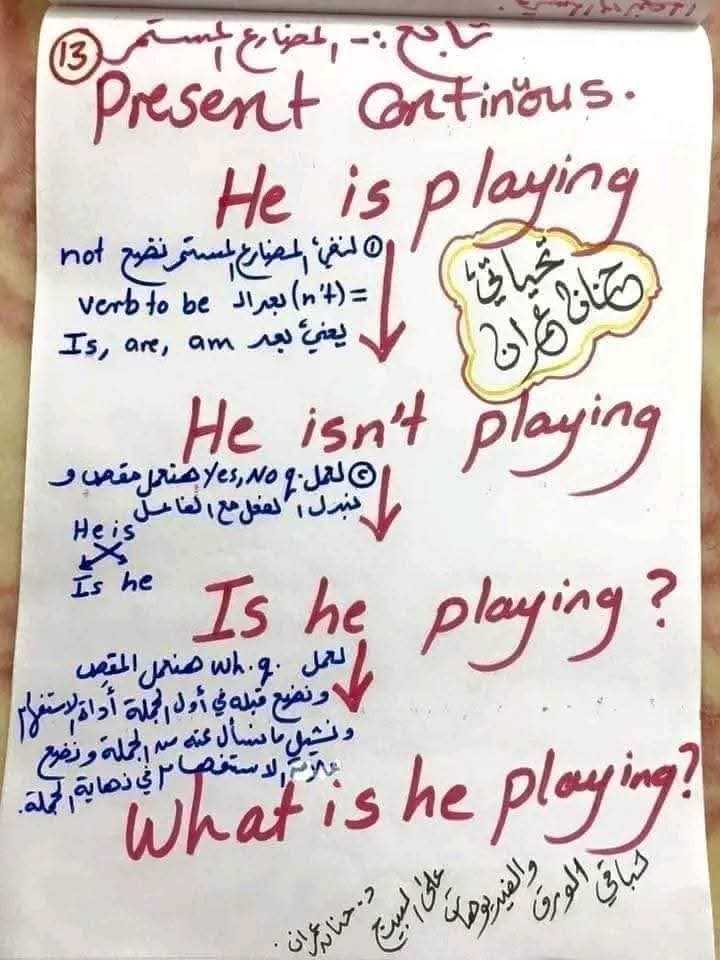 13
تابع :- المضارع المستمر
Present Continuous.
He is playing
① لنفي المضارع المستمر نضع not
= (n't) بعد الـ verb to be
يعني بعد Is, are, am
تحياتي
حنان عمران
He isn't playing
② لعمل Yes, No q. هنعمل مقص و
نبدل الفعل مع الفاعل
He is
Is he
Is he playing?
لعمل wh. q. هنعمل المقص
و نضع قبله في أول الجملة أداة الاستفهام
و نشيل ما نسأل عنه من الجملة و نضع
علامة الاستفهام في نهاية الجملة.
What is he playing?
لباقي الورق والفيديوهات على البيج
د. حنان عمران.